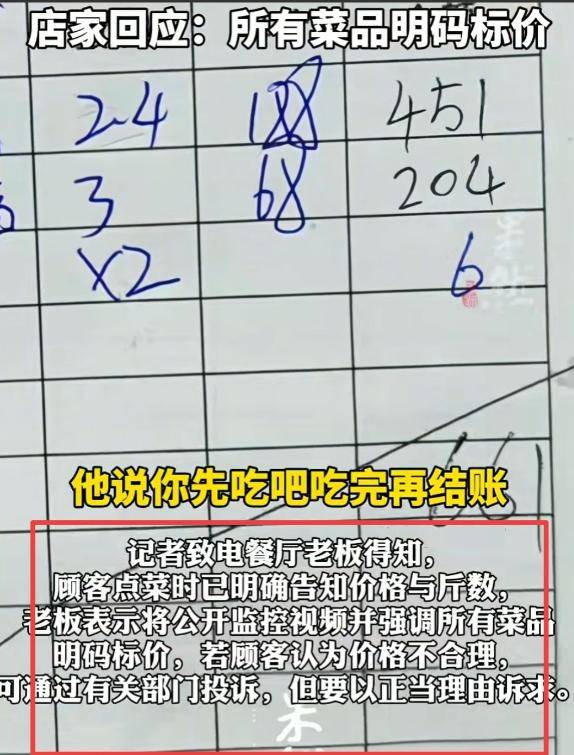 店家回应：所有菜品明码标价
2.4 188 451
3 68 204
×2 6
661
他说你先吃吧吃完再结账
记者致电餐厅老板得知，
顾客点菜时已明确告知价格与斤数，
老板表示将公开监控视频并强调所有菜品
明码标价，若顾客认为价格不合理，
可通过有关部门投诉，但要以正当理由诉求。